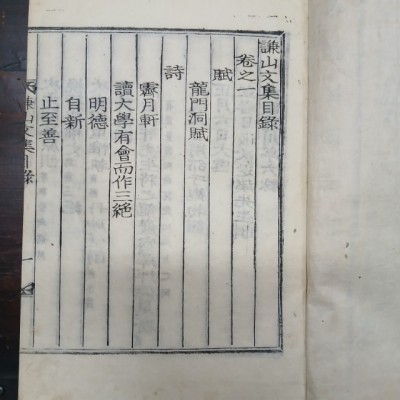 謙山文集目錄
卷之一
賦
龍門洞賦
詩
霽月軒
讀大學有會而作三絶
明德
自新
止至善
謙山文集 目錄 一